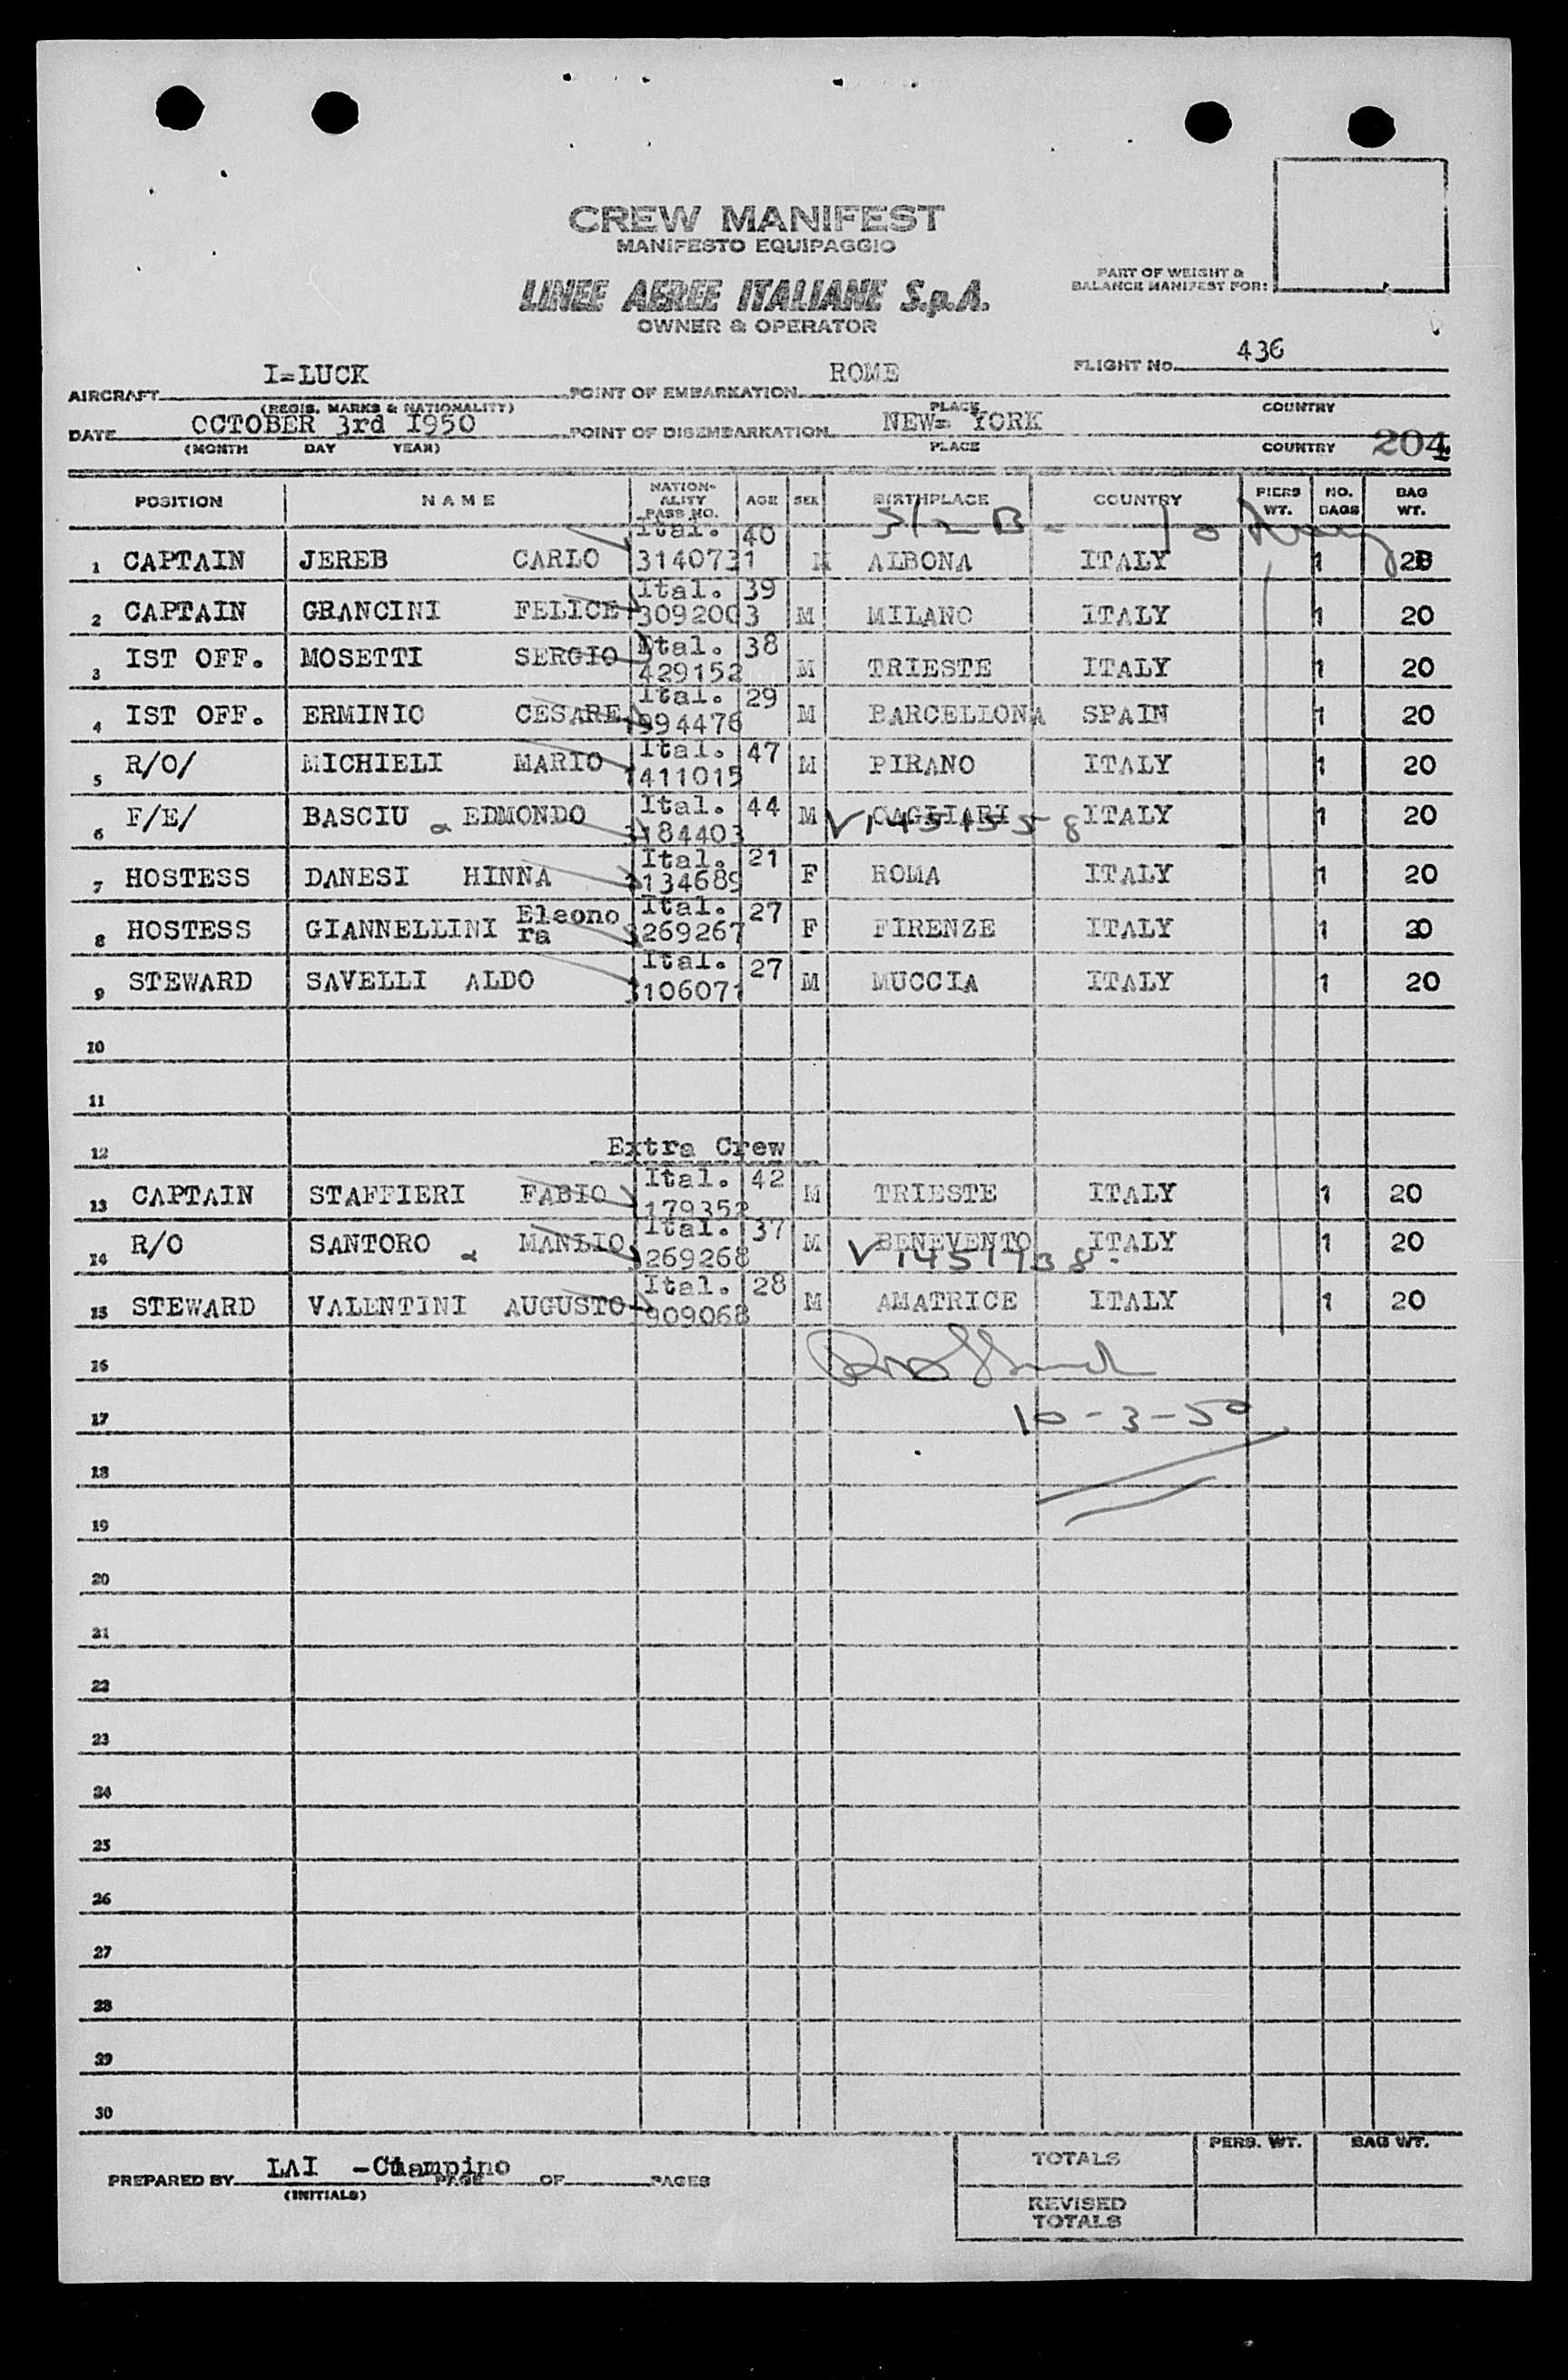 CREW MANIFEST
MANIFESTO EQUIPAGGIO
LINEE AEREE ITALIANE S.p.A.
OWNER & OPERATOR
PART OF WEIGHT &
BALANCE MANIFEST FOR:
AIRCRAFT I=LUCK POINT OF EMBARKATION ROME FLIGHT NO. 436
(REGIS. MARKS & NATIONALITY) PLACE COUNTRY
DATE OCTOBER 3rd I950 POINT OF DISEMBARKATION NEW= YORK
(MONTH DAY YEAR) PLACE COUNTRY 204
POSITION NAME NATION-ALITY PASS NO. AGE SEX BIRTHPLACE COUNTRY PIERS WT. NO. BAGS BAG WT.
3/2 B -
1 CAPTAIN JEREB CARLO Ital. 3140731 40 M ALBONA ITALY 1 20
2 CAPTAIN GRANCINI FELICE Ital. 3092003 39 M MILANO ITALY 1 20
3 IST OFF. MOSETTI SERGIO Ital. 429152 38 M TRIESTE ITALY 1 20
4 IST OFF. ERMINIO CESARE Ital. 994476 29 M BARCELLONA SPAIN 1 20
5 R/O/ MICHIELI MARIO Ital. 1411015 47 M PIRANO ITALY 1 20
6 F/E/ BASCIU EDMONDO Ital. 3184403 44 M CAGLIARI ITALY 1 20
7 HOSTESS DANESI HINNA Ital. 3134689 21 F ROMA ITALY 1 20
8 HOSTESS GIANNELLINI Eleonora Ital. 3269267 27 F FIRENZE ITALY 1 20
9 STEWARD SAVELLI ALDO Ital. 3106071 27 M MUCCIA ITALY 1 20
10
11
12 Extra Crew
13 CAPTAIN STAFFIERI FABIO Ital. 1179352 42 M TRIESTE ITALY 1 20
14 R/O SANTORO MANLIO Ital. 3269268 37 M BENEVENTO ITALY 1 20
V 1451938.
15 STEWARD VALENTINI AUGUSTO Ital. 909068 28 M AMATRICE ITALY 1 20
16
17 10-3-50
18
19
20
21
22
23
24
25
26
27
28
29
30
PREPARED BY LAI -Ciampino PAGE OF PAGES
(INITIALS)
TOTALS PERS. WT. BAG WT.
REVISED
TOTALS